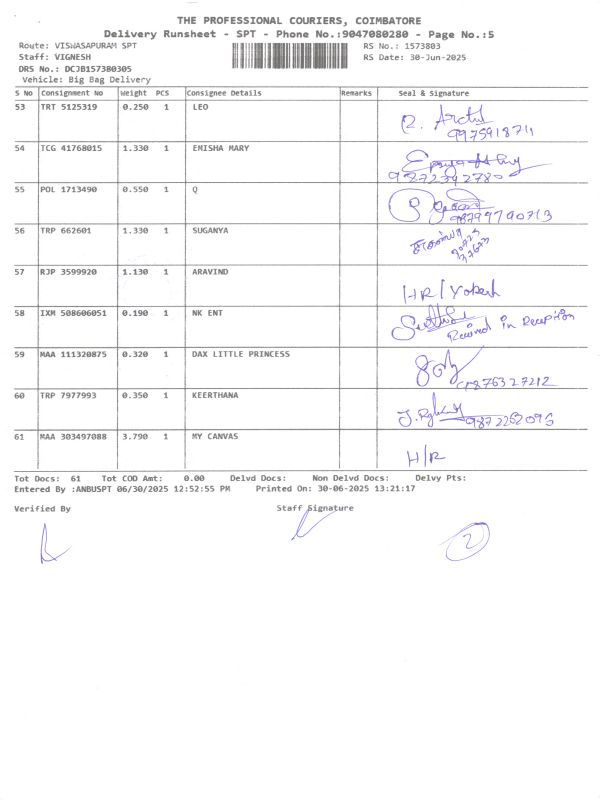 THE PROFESSIONAL COURIERS, COIMBATORE
Delivery Runsheet - SPT - Phone No.:9047080280 - Page No.:5
Route: VISWASAPURAM SPT RS No.: 1573803
Staff: VIGNESH RS Date: 30-Jun-2025
DRS No.: DCJB157380305
Vehicle: Big Bag Delivery
S No Consignment No Weight PCS Consignee Details Remarks Seal & Signature
53 TRT 5125319 0.250 1 LEO
9975918711
54 TCG 41768015 1.330 1 EMISHA MARY
55 POL 1713490 0.550 1 Q
56 TRP 662601 1.330 1 SUGANYA
57 RJP 3599920 1.130 1 ARAVIND
HR/Yokesh
58 IXM 508606051 0.190 1 NK ENT
Received in Reception
59 MAA 111320875 0.320 1 DAX LITTLE PRINCESS
60 TRP 7977993 0.350 1 KEERTHANA
61 MAA 303497088 3.790 1 MY CANVAS
H/R
Tot Docs: 61 Tot COD Amt: 0.00 Delvd Docs: Non Delvd Docs: Delvy Pts:
Entered By :ANBUSPT 06/30/2025 12:52:55 PM Printed On: 30-06-2025 13:21:17
Verified By Staff Signature
2